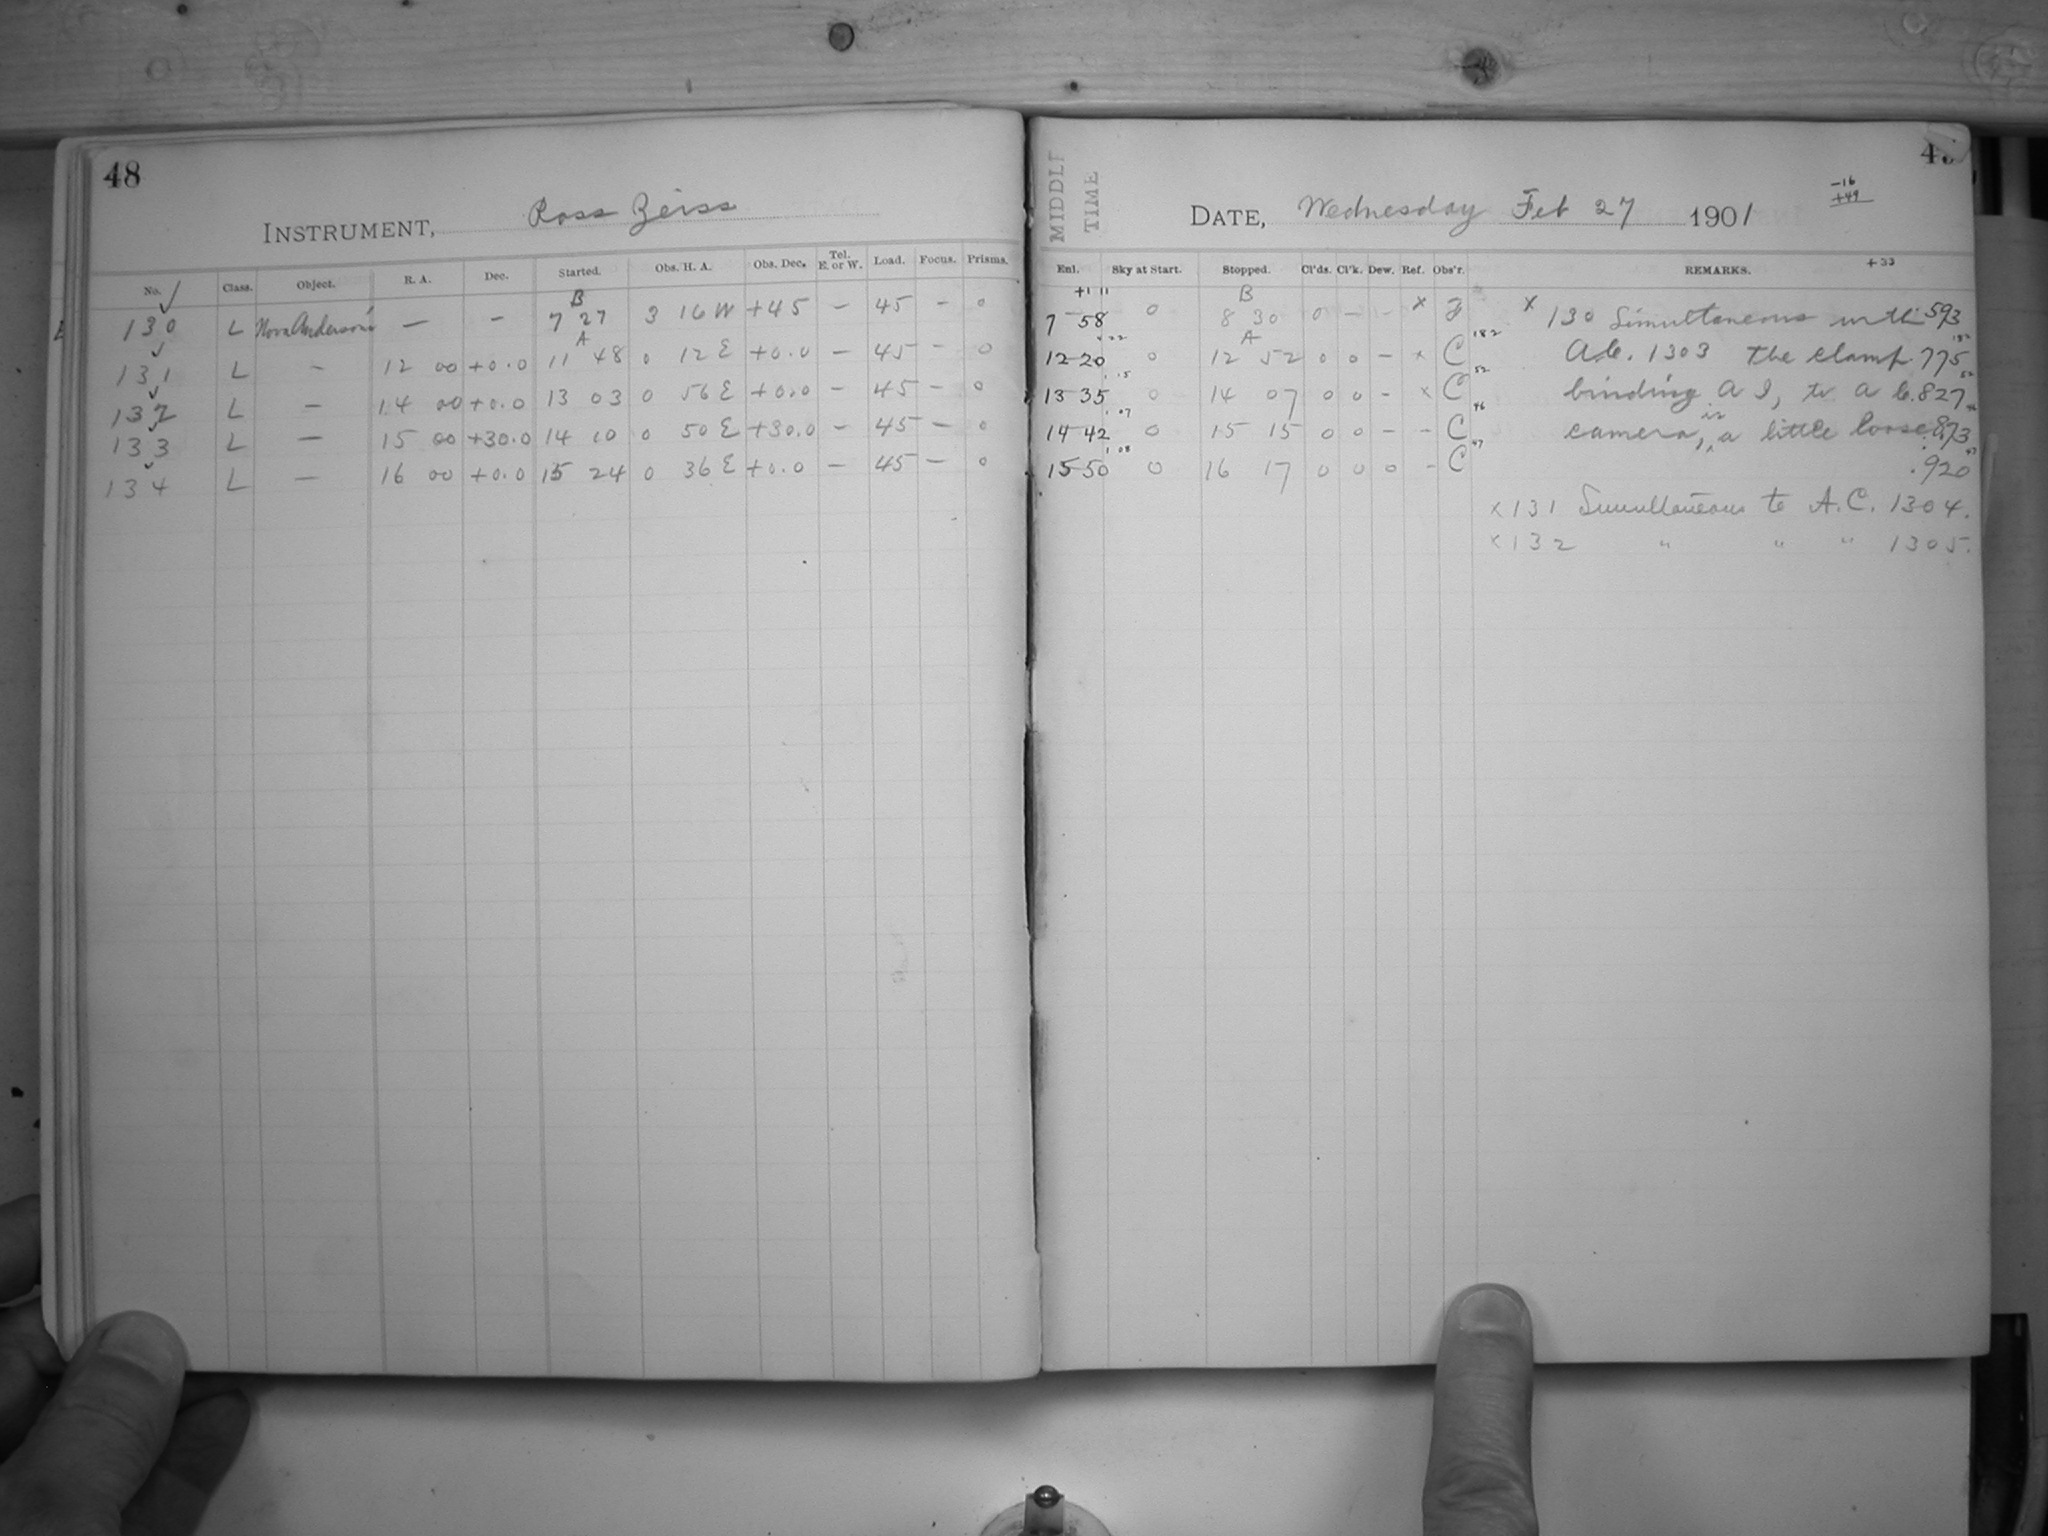 48
INSTRUMENT, Ross Zeiss
No. Class. Object. R. A. Dec. Started. Obs. H. A. Obs. Dec. Tel. E. or W. Load. Focus. Prisms.
130 L Nova Anderson's — – B 7 27 3 16 W +45 – 45 – 0
131 L – 12 00 +0.0 A 11 48 0 12 E +0.0 – 45 – 0
132 L – 14 00 +0.0 13 03 0 56 E +0.0 – 45 – 0
133 L – 15 00 +30.0 14 10 0 50 E +30.0 – 45 – 0
134 L – 16 00 +0.0 15 24 0 36 E +0.0 – 45 – 0
MIDDLE
TIME
DATE, Wednesday Feb 27 1901
-16
+49
+33
Enl. Sky at Start. Stopped. Cl'ds. Cl'k. Dew. Ref. Obs'r. REMARKS.
7-58 0 B 8 30 0 – – x x 130 Simultaneous with .593
12-20 0 A 12 52 0 0 – x C 182 A.C. 1303 The clamp .775 182
13-35 0 14 07 0 0 – x C 52 binding A I, to A C. .827 52
14-42 0 15 15 0 0 – – C 46 camera, is a little loose. .873
15-50 0 16 17 0 0 0 – C 47 .920 47
x 131 Simultaneous to A.C. 1304.
x 132 " " " 1305.